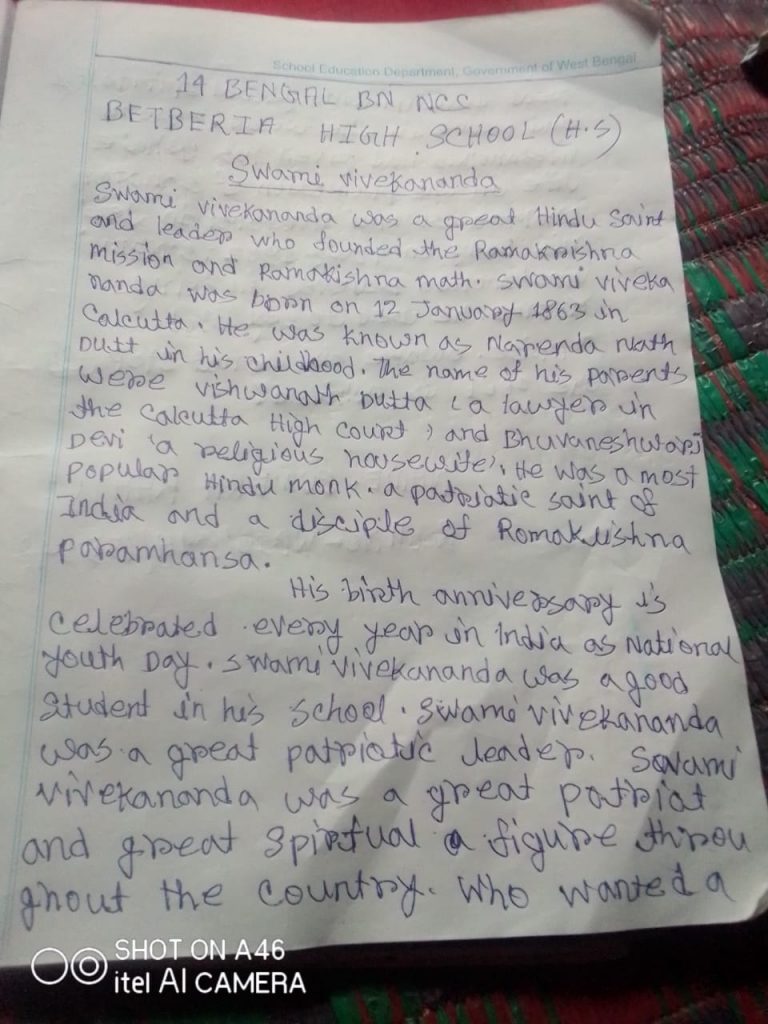 School Education Department, Government of West Bengal
14 BENGAL BN NCC
BETBERIA HIGH SCHOOL (H.S)
Swami vivekananda
Swami vivekananda was a great Hindu Saint
and leader who founded the Ramakrishna
mission and Ramakishna math. Swami viveka
nanda was born on 12 January 1863 in
Calcutta. He was known as Narenda Nath
Dutt in his childhood. The name of his parents
were vishwanath Dutta (a lawyer in
the Calcutta High court) and Bhuvaneshwari
Devi 'a religious housewife'. He was a most
popular Hindu monk. a patriatic saint of
India and a disciple of Romakrishna
paramhansa.
His birth anniversary is
celebrated every year in India as National
Youth Day. Swami vivekananda was a good
Student in his school. Swami vivekananda
was a great patriotic leader. Swami
vivekananda was a great patriot
and great spirtual a figure throu
ghout the country. Who wanted a
SHOT ON A46
itel AI CAMERA